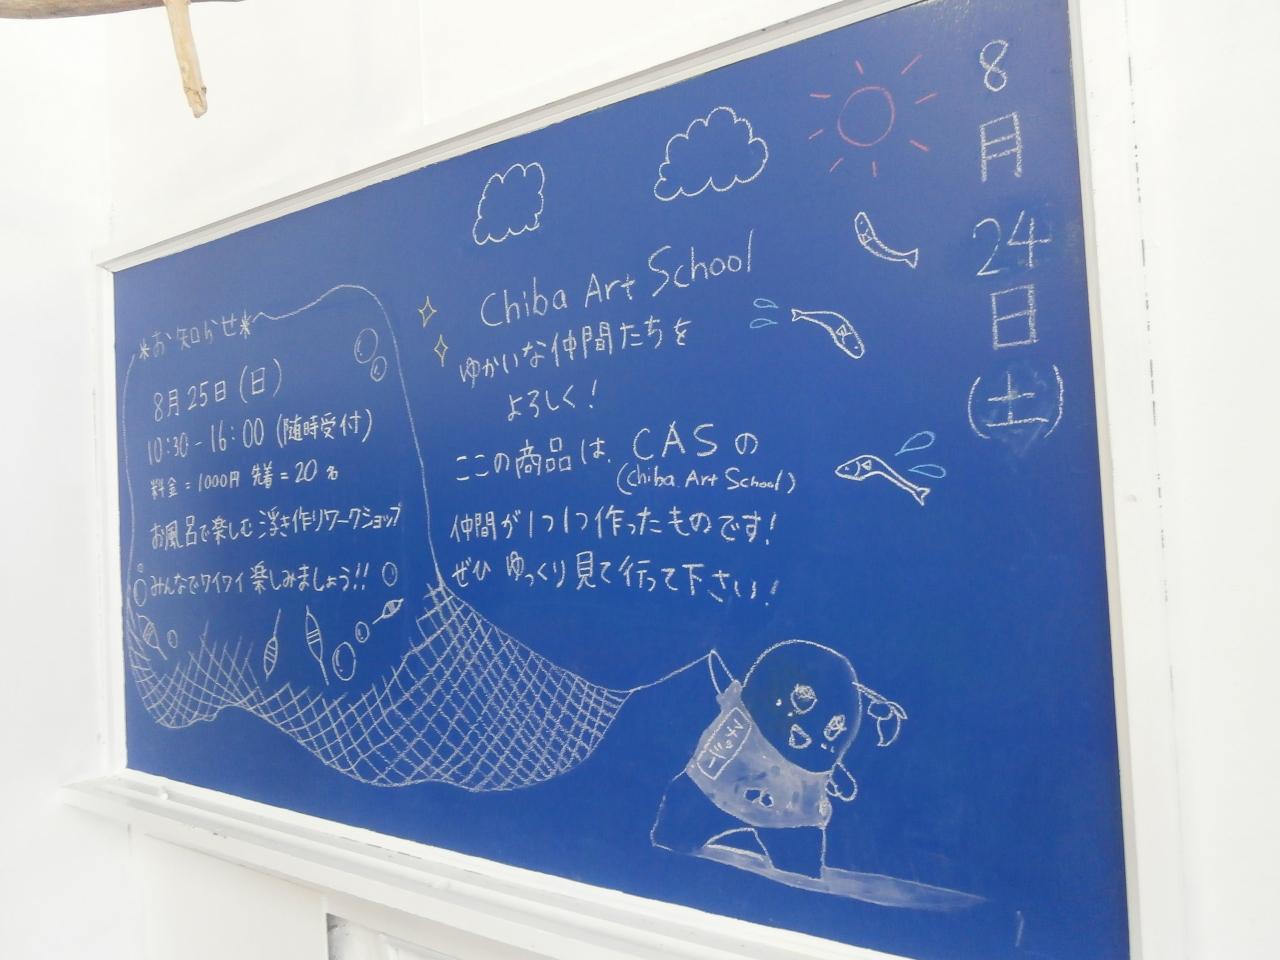 8月24日(土)
Chiba Art School
ゆかいな仲間たちを
よろしく!
ここの商品は、CASの
(Chiba Art School)
仲間が1つ1つ作ったものです!
ぜひ ゆっくり見て行って下さい!
*お知らせ*
8月25日(日)
10:30-16:00 (随時受付)
料金=1000円 先着=20名
お風呂で楽しむ浮き作りワークショップ
みんなでワイワイ楽しみましょう!!